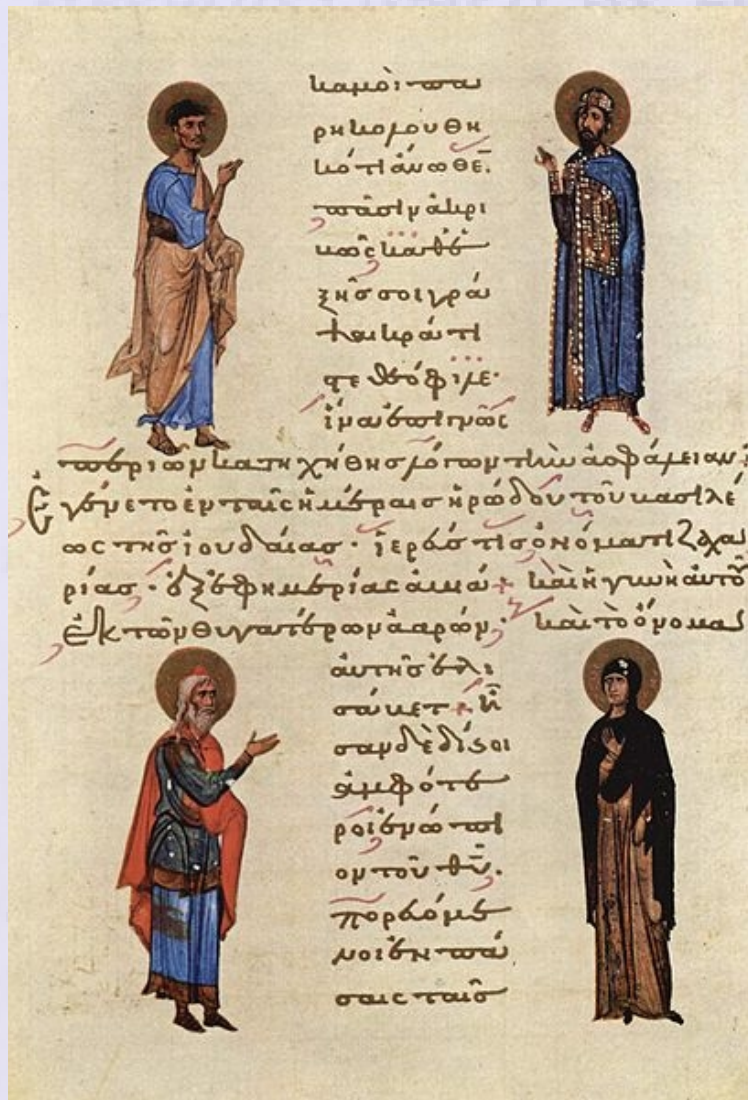 κἀμοὶ πα
ρηκολουθη
κότι ἄνωθε̄.
πᾶσιν ἀκρι
βῶς καθε
ξῆς σοι γρά
ψαι κράτι
στε θεόφιλε·
ἵνα ἐπιγνῶς
περὶ ὧν κατηχήθης λόγων τὴν ἀσφάλειαν:
Ἐγένετο ἐν ταῖς ἡμέραις ἡρώδου τοῦ βασιλέ
ως τῆς ἰουδαίας· ἱερεύς τις ὀνόματι ζαχα
ρίας· ἐξ ἐφημερίας ἀβιά + καὶ ἡ γυνὴ αὐτοῦ
ἐκ τῶν θυγατέρων ἀαρών· καὶ τὸ ὄνομα
αὐτῆς ἐλι
σάβετ + ἦ
σαν δὲ δίκαιοι
ἀμφότε
ροι ἐνώπι
ον τοῦ θῦ.
πορευόμε
νοι ἐν πά
σαις ταῖς